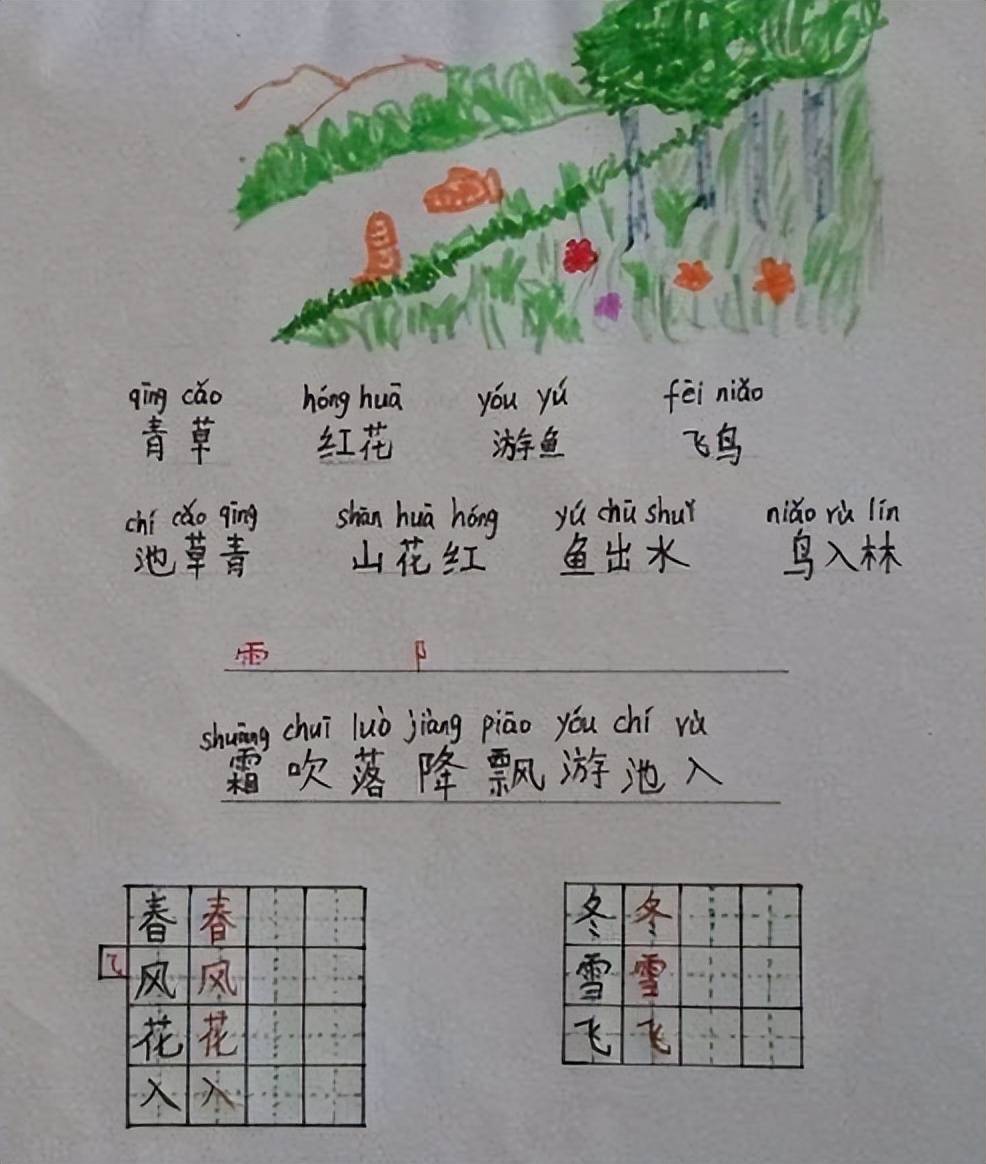 qīng cǎo hóng huā yóu yú fēi niǎo
青草 红花 游鱼 飞鸟
chí cǎo qīng shān huā hóng yú chū shuǐ niǎo rù lín
池草青 山花红 鱼出水 鸟入林
⻗ 阝
shuāng chuī luò jiàng piāo yóu chí rù
霜 吹 落 降 飘 游 池 入
春 春 冬 冬
⺄ 风 风 雪 雪
花 花 飞 飞
入 入